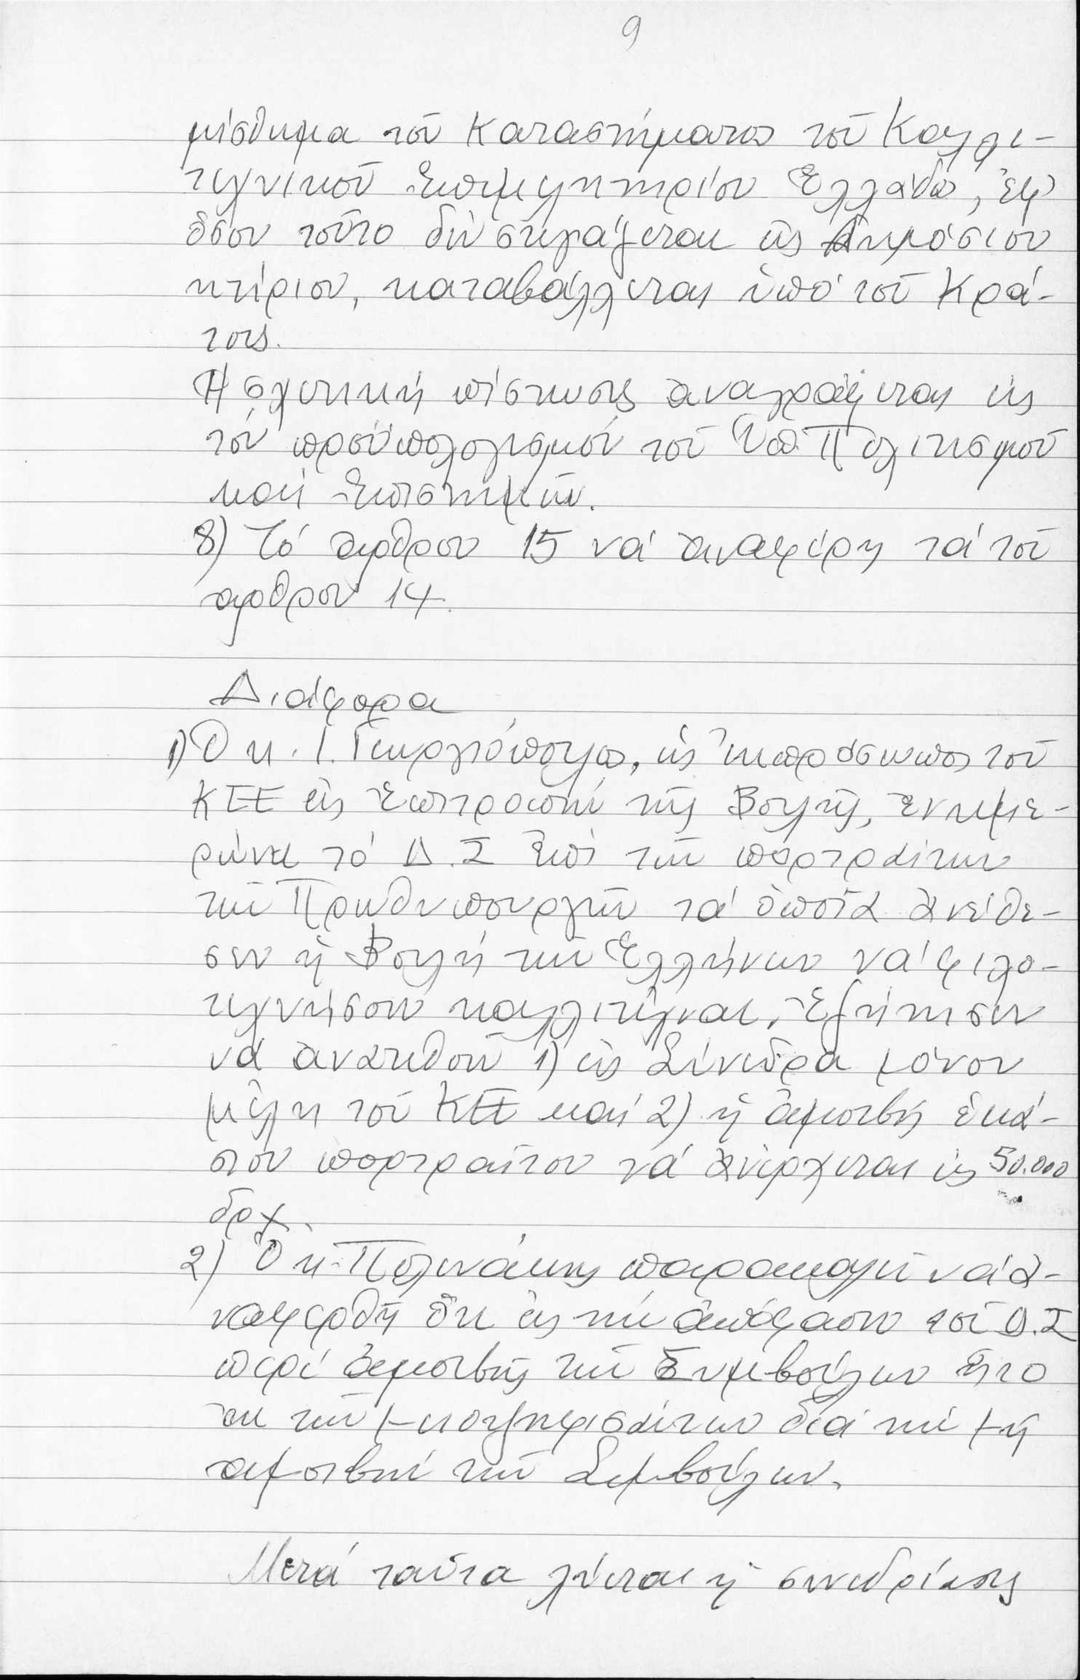 9
μίσθωμα τοῦ Καταστήματος τοῦ Καλλι-
τεχνικοῦ Ἐπιμελητηρίου Ἑλλάδος, ἐφ'
ὅσον τοῦτο δέν στεγάζεται εἰς Δημόσιον
κτίριον, καταβάλλεται ὑπό τοῦ Κρά-
τους.
Ἡ σχετική πίστωσις ἀναγράφεται εἰς
τόν προϋπολογισμόν τοῦ Ὑπ. Πολιτισμοῦ
καί Ἐπιστημῶν.
8) Τό ἄρθρον 15 νά ἀναφέρη τά τοῦ
ἄρθρου 14.
Διάφορα
1) Ὁ κ. Ι. Γεωργιόπουλος, ὡς ἐκπρόσωπος τοῦ
ΚΕΕ εἰς Ἐπιτροπή τῆς Βουλῆς, ἐνημε-
ρώνει τό Δ.Σ ἐπί τῶν πορτραίτων
τῶν Πρωθυπουργῶν τά ὁποῖα ἀνέθε-
σεν ἡ Βουλή τῶν Ἑλλήνων νά φιλο-
τεχνήσουν καλλιτέχναι. Ἐζήτησεν
νά ἀνατεθοῦν 1) εἰς Σύνεδρα μόνον
μέλη τοῦ ΚΕΕ καί 2) ἡ ἀμοιβή ἑκά-
στου πορτραίτου νά ἀνέρχεται εἰς 50.000
δρχ.
2) Ὁ κ. Πολυνάκης παρακαλεῖ νά ἀ-
ναφερθῆ ὅτι εἰς τήν ἀπόφασιν τοῦ Δ.Σ
περί ἀμοιβῆς τῶν Συμβούλων ἦτο
ἐκ τῶν μειοψηφισάντων διά τήν μή
ἀμοιβήν τῶν Συμβούλων.
Μετά ταῦτα λύεται ἡ συνεδρίασις